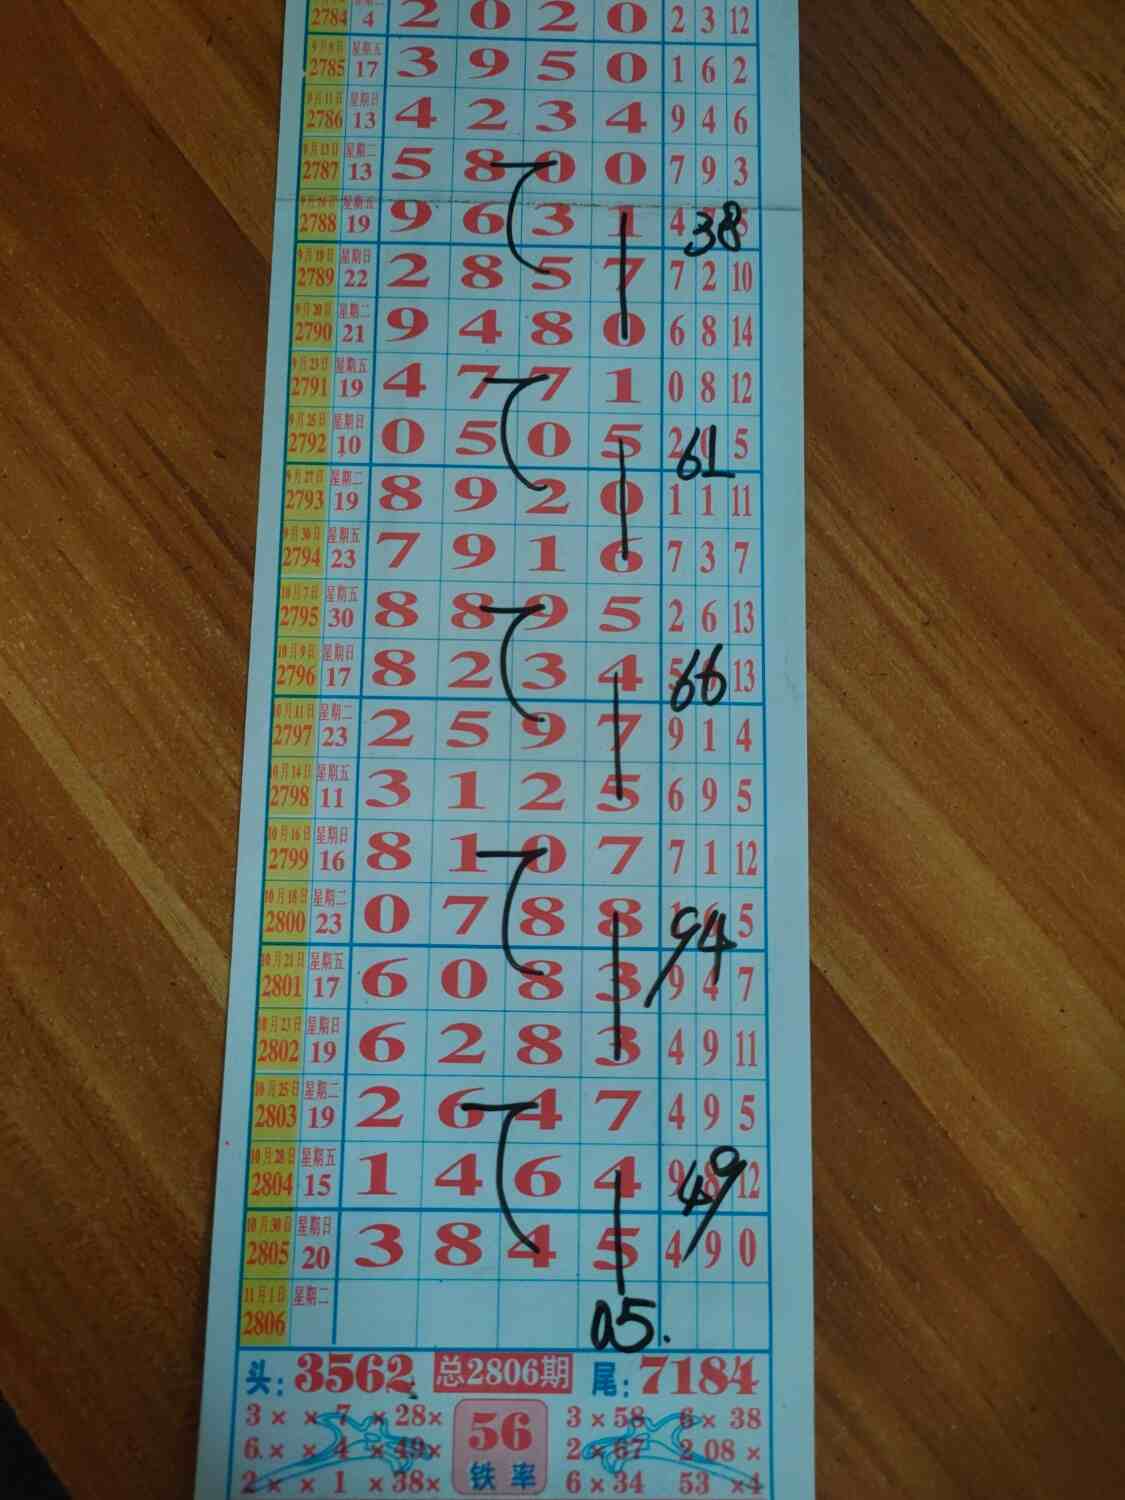 2784 4 2 0 2 0 2 3 12
9月9日 星期五
2785 17 3 9 5 0 1 6 2
9月11日 星期日
2786 13 4 2 3 4 9 4 6
9月13日 星期二
2787 13 5 8 0 0 7 9 3
星期五
2788 19 9 6 3 1 4 38
9月18日 星期日
2789 22 2 8 5 7 7 2 10
9月20日 星期二
2790 21 9 4 8 0 6 8 14
9月23日 星期五
2791 19 4 7 7 1 0 8 12
9月25日 星期日
2792 10 0 5 0 5 2 61 5
9月27日 星期二
2793 19 8 9 2 0 1 1 11
9月30日 星期五
2794 23 7 9 1 6 7 3 7
10月7日 星期五
2795 30 8 8 9 5 2 6 13
10月9日 星期日
2796 17 8 2 3 4 66 13
10月11日 星期二
2797 23 2 5 9 7 9 1 4
10月14日 星期五
2798 11 3 1 2 5 6 9 5
10月16日 星期日
2799 16 8 1 0 7 7 1 12
10月18日 星期二
2800 23 0 7 8 8 94 5
10月21日 星期五
2801 17 6 0 8 3 9 4 7
10月23日 星期日
2802 19 6 2 8 3 4 9 11
10月25日 星期二
2803 19 2 6 4 7 4 9 5
10月28日 星期五
2804 15 1 4 6 4 9 8 12
49
10月30日 星期日
2805 20 3 8 4 5 4 9 0
11月1日 星期二
2806
05.
头:3562 总2806期 尾:7184
3××7×28× 56 3×58 6×38
6××4×49× 铁率 2×67 208×
2××1×38× 6×34 53×4